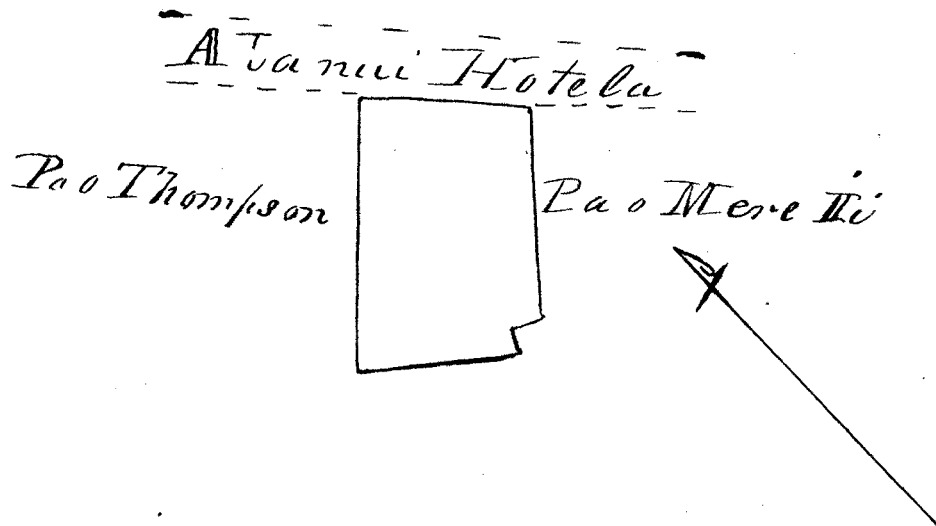 Alanui Hotela
Pa o Thompson
Pa o Mere Ii